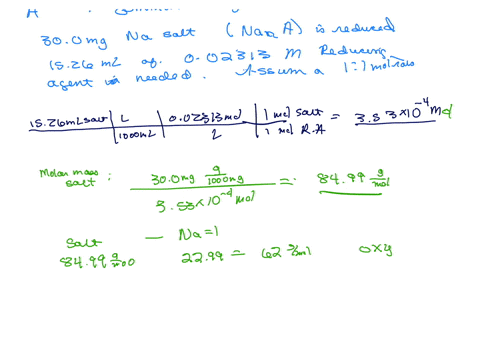 A
30.0 mg Na salt (NaₙA) is reduced
15.26 mL of 0.02313 M Reducing
agent is needed. Assum a 1:1 mol ratio
15.26 mL salt | L | 0.02313 mol | 1 mol salt = 3.53 × 10⁻⁴ mol
1000mL | L | 1 mol R.A
Molar mass salt : 30.0 mg g/1000mg = 84.99 g/mol
3.53 × 10⁻⁴ mol
Salt — Na = 1
84.99 g/mol 22.99 = 62 g/mol oxy